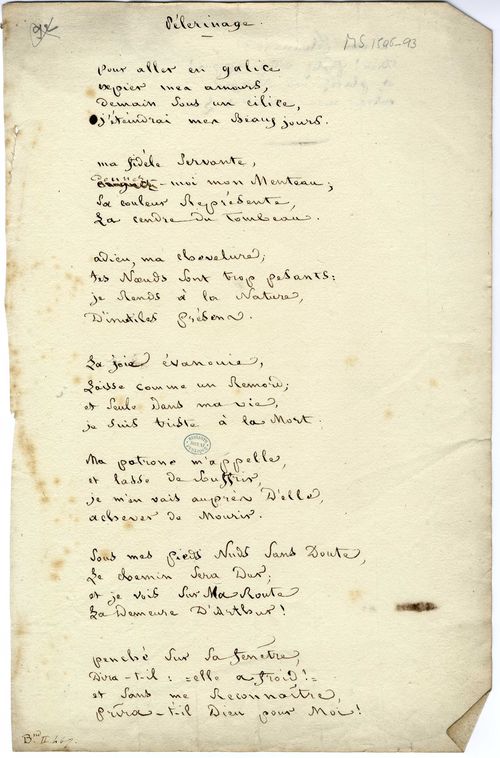 Pèlerinage.
MS. 1596-93
pour aller en galice
expier mes amours,
demain sous un cilice,
j'éteindrai mes Beaux jours.
ma fidèle servante,
donnez-moi mon Manteau;
Sa couleur Représente,
La cendre du tombeau.
adieu, ma chevelure;
tes Nœuds sont trop pesants:
je Rends à la Nature,
D'inutiles présens.
La joie évanouie,
Laisse comme un Remord;
et seule dans ma vie,
je suis triste à la Mort.
Ma patrone m'appelle,
et lasse de souffrir,
je m'en vais auprès D'elle,
achever de Mourir.
Sous mes pieds Nuds Sans Doute,
Le chemin sera Dur;
et je vois sur Ma Route
La Demeure D'Arthur!
penché sur sa fenêtre,
Dira-t-il: =elle a froid!=
et sans me Reconnaître,
prîra-t-il Dieu pour Moi!